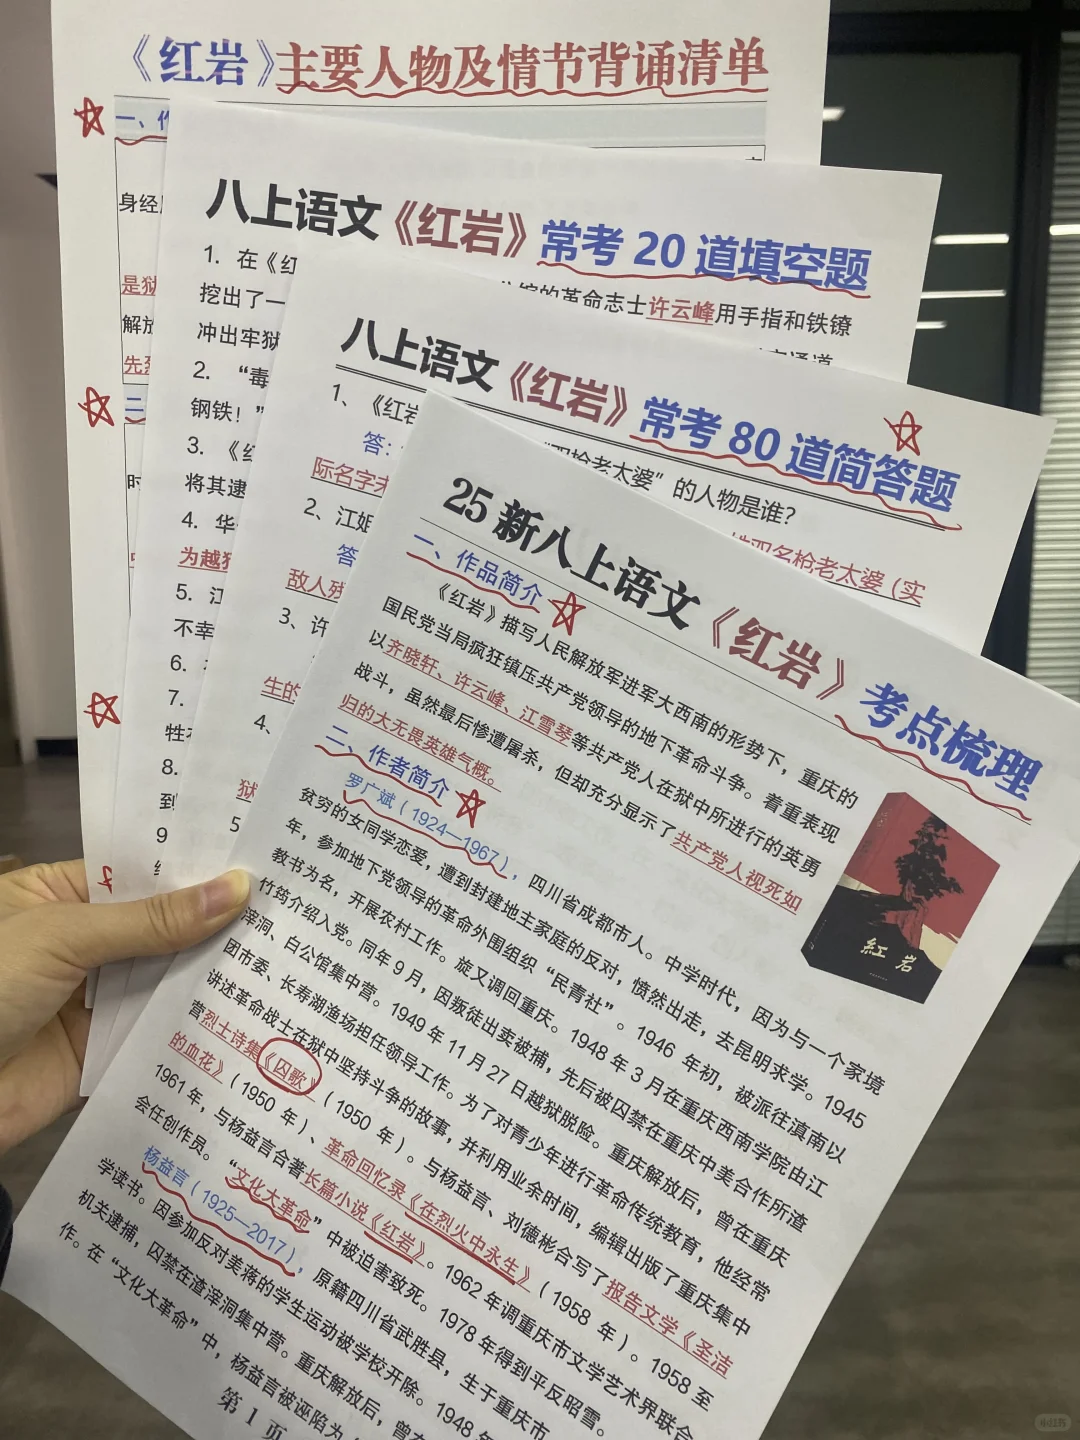 《红岩》主要人物及情节背诵清单
一、作
身经
是狱
解放
先烈
二
时
八上语文《红岩》常考 20 道填空题
1. 在《红
的革命志士许云峰用手指和铁镣
挖出了一
冲出牢狱
2. “毒
钢铁！”
3. 《红
将其逮
4. 华
为越狱
5. 江
不幸
6.
7.
牲
8.
到
9
八上语文《红岩》常考 80 道简答题
1、《红岩
“双枪老太婆”的人物是谁？
答：
双名枪老太婆（实
际名字
2、江姐
答
敌人残
3、许
生的
4、
狱
5
25 新八上语文《红岩》考点梳理
一、作品简介
《红岩》描写人民解放军进军大西南的形势下，重庆的
国民党当局疯狂镇压共产党领导的地下革命斗争。着重表现
以齐晓轩、许云峰、江雪琴等共产党人在狱中所进行的英勇
战斗，虽然最后惨遭屠杀，但却充分显示了共产党人视死如
归的大无畏英雄气概。
二、作者简介
罗广斌（1924—1967），四川省成都市人。中学时代，因为与一个家境
贫穷的女同学恋爱，遭到封建地主家庭的反对，愤然出走，去昆明求学。1945
年，参加地下党领导的革命外围组织“民青社”。1946 年初，被派往滇南以
教书为名，开展农村工作。旋又调回重庆。1948 年 3 月在重庆西南学院由江
竹筠介绍入党。同年 9 月，因叛徒出卖被捕，先后被囚禁在重庆中美合作所渣
滓洞、白公馆集中营。1949 年 11 月 27 日越狱脱险。重庆解放后，曾在重庆
团市委、长寿湖渔场担任领导工作。为了对青少年进行革命传统教育，他经常
讲述革命战士在狱中坚持斗争的故事，并利用业余时间，编辑出版了重庆集中
营烈士诗集《囚歌》（1950 年）。与杨益言、刘德彬合写了报告文学《圣洁
的血花》（1950 年）、革命回忆录《在烈火中永生》（1958 年）。1958 至
1961 年，与杨益言合著长篇小说《红岩》。1962 年调重庆市文学艺术界联合
会任创作员。“文化大革命”中被迫害致死。1978 年得到平反昭雪。
杨益言（1925—2017），原籍四川省武胜县，生于重庆市
学读书。因参加反对美蒋的学生运动被学校开除。1948 年
机关逮捕，囚禁在渣滓洞集中营。重庆解放后，曾在
作。在“文化大革命”中，杨益言被诬陷为
第 1 页
紅岩
小红书